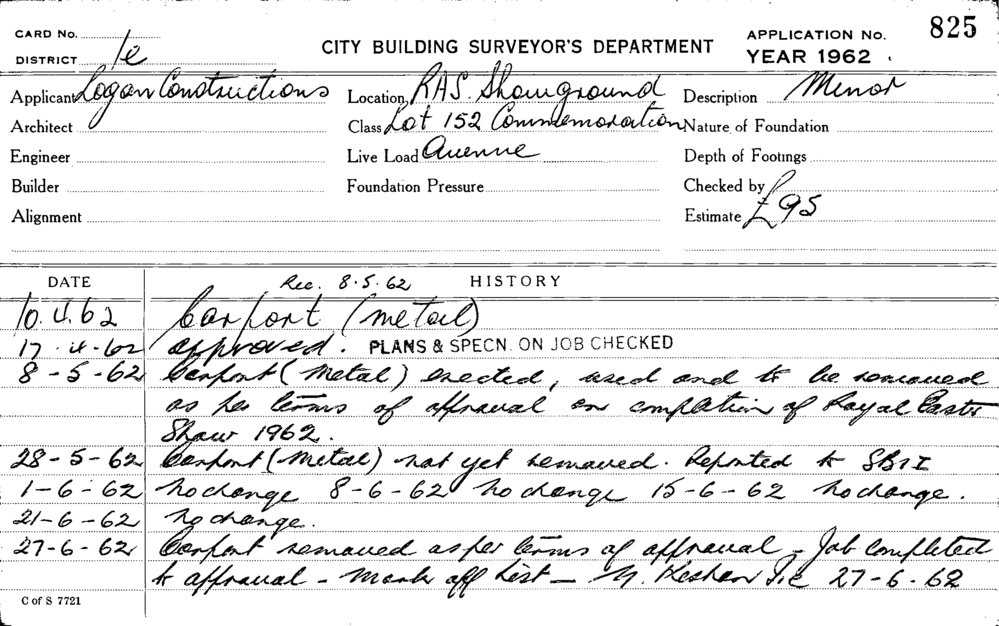 CARD No. CITY BUILDING SURVEYOR'S DEPARTMENT APPLICATION No. 825
DISTRICT 1c YEAR 1962
Applicant Logan Constructions Location RAS. Showground Description Minor
Architect Class Lot 152 Commemoration Nature of Foundation
Engineer Live Load Avenue Depth of Footings
Builder Foundation Pressure Checked by
Alignment Estimate £95
DATE Rec. 8.5.62 HISTORY
10.4.62 Carport (metal)
17.4.62 approved. PLANS & SPECN. ON JOB CHECKED
8-5-62 Carport (Metal) erected, used and to be removed
as per terms of approval on completion of Royal Easter
Show 1962.
28-5-62 Carport (Metal) not yet removed. Reported to SB1I
1-6-62 No change 8-6-62 No change 15-6-62 No change.
21-6-62 No change.
27-6-62 Carport removed as per terms of approval - Job Completed
to approval - Mark off List - 27-6-62
C of S 7721